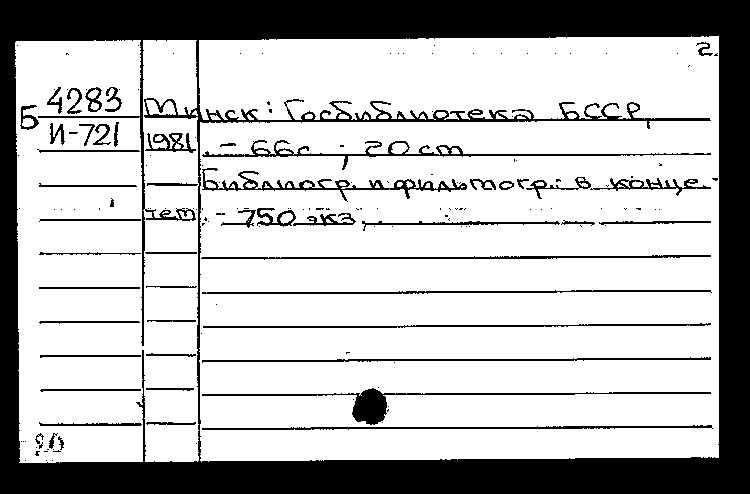 2.
Б 4283 Минск: Госбиблиотека БССР,
И-721 1981. - 66с ; 20 cm
Библиогр. и фильмогр.: в конце
тем. - 750 экз.